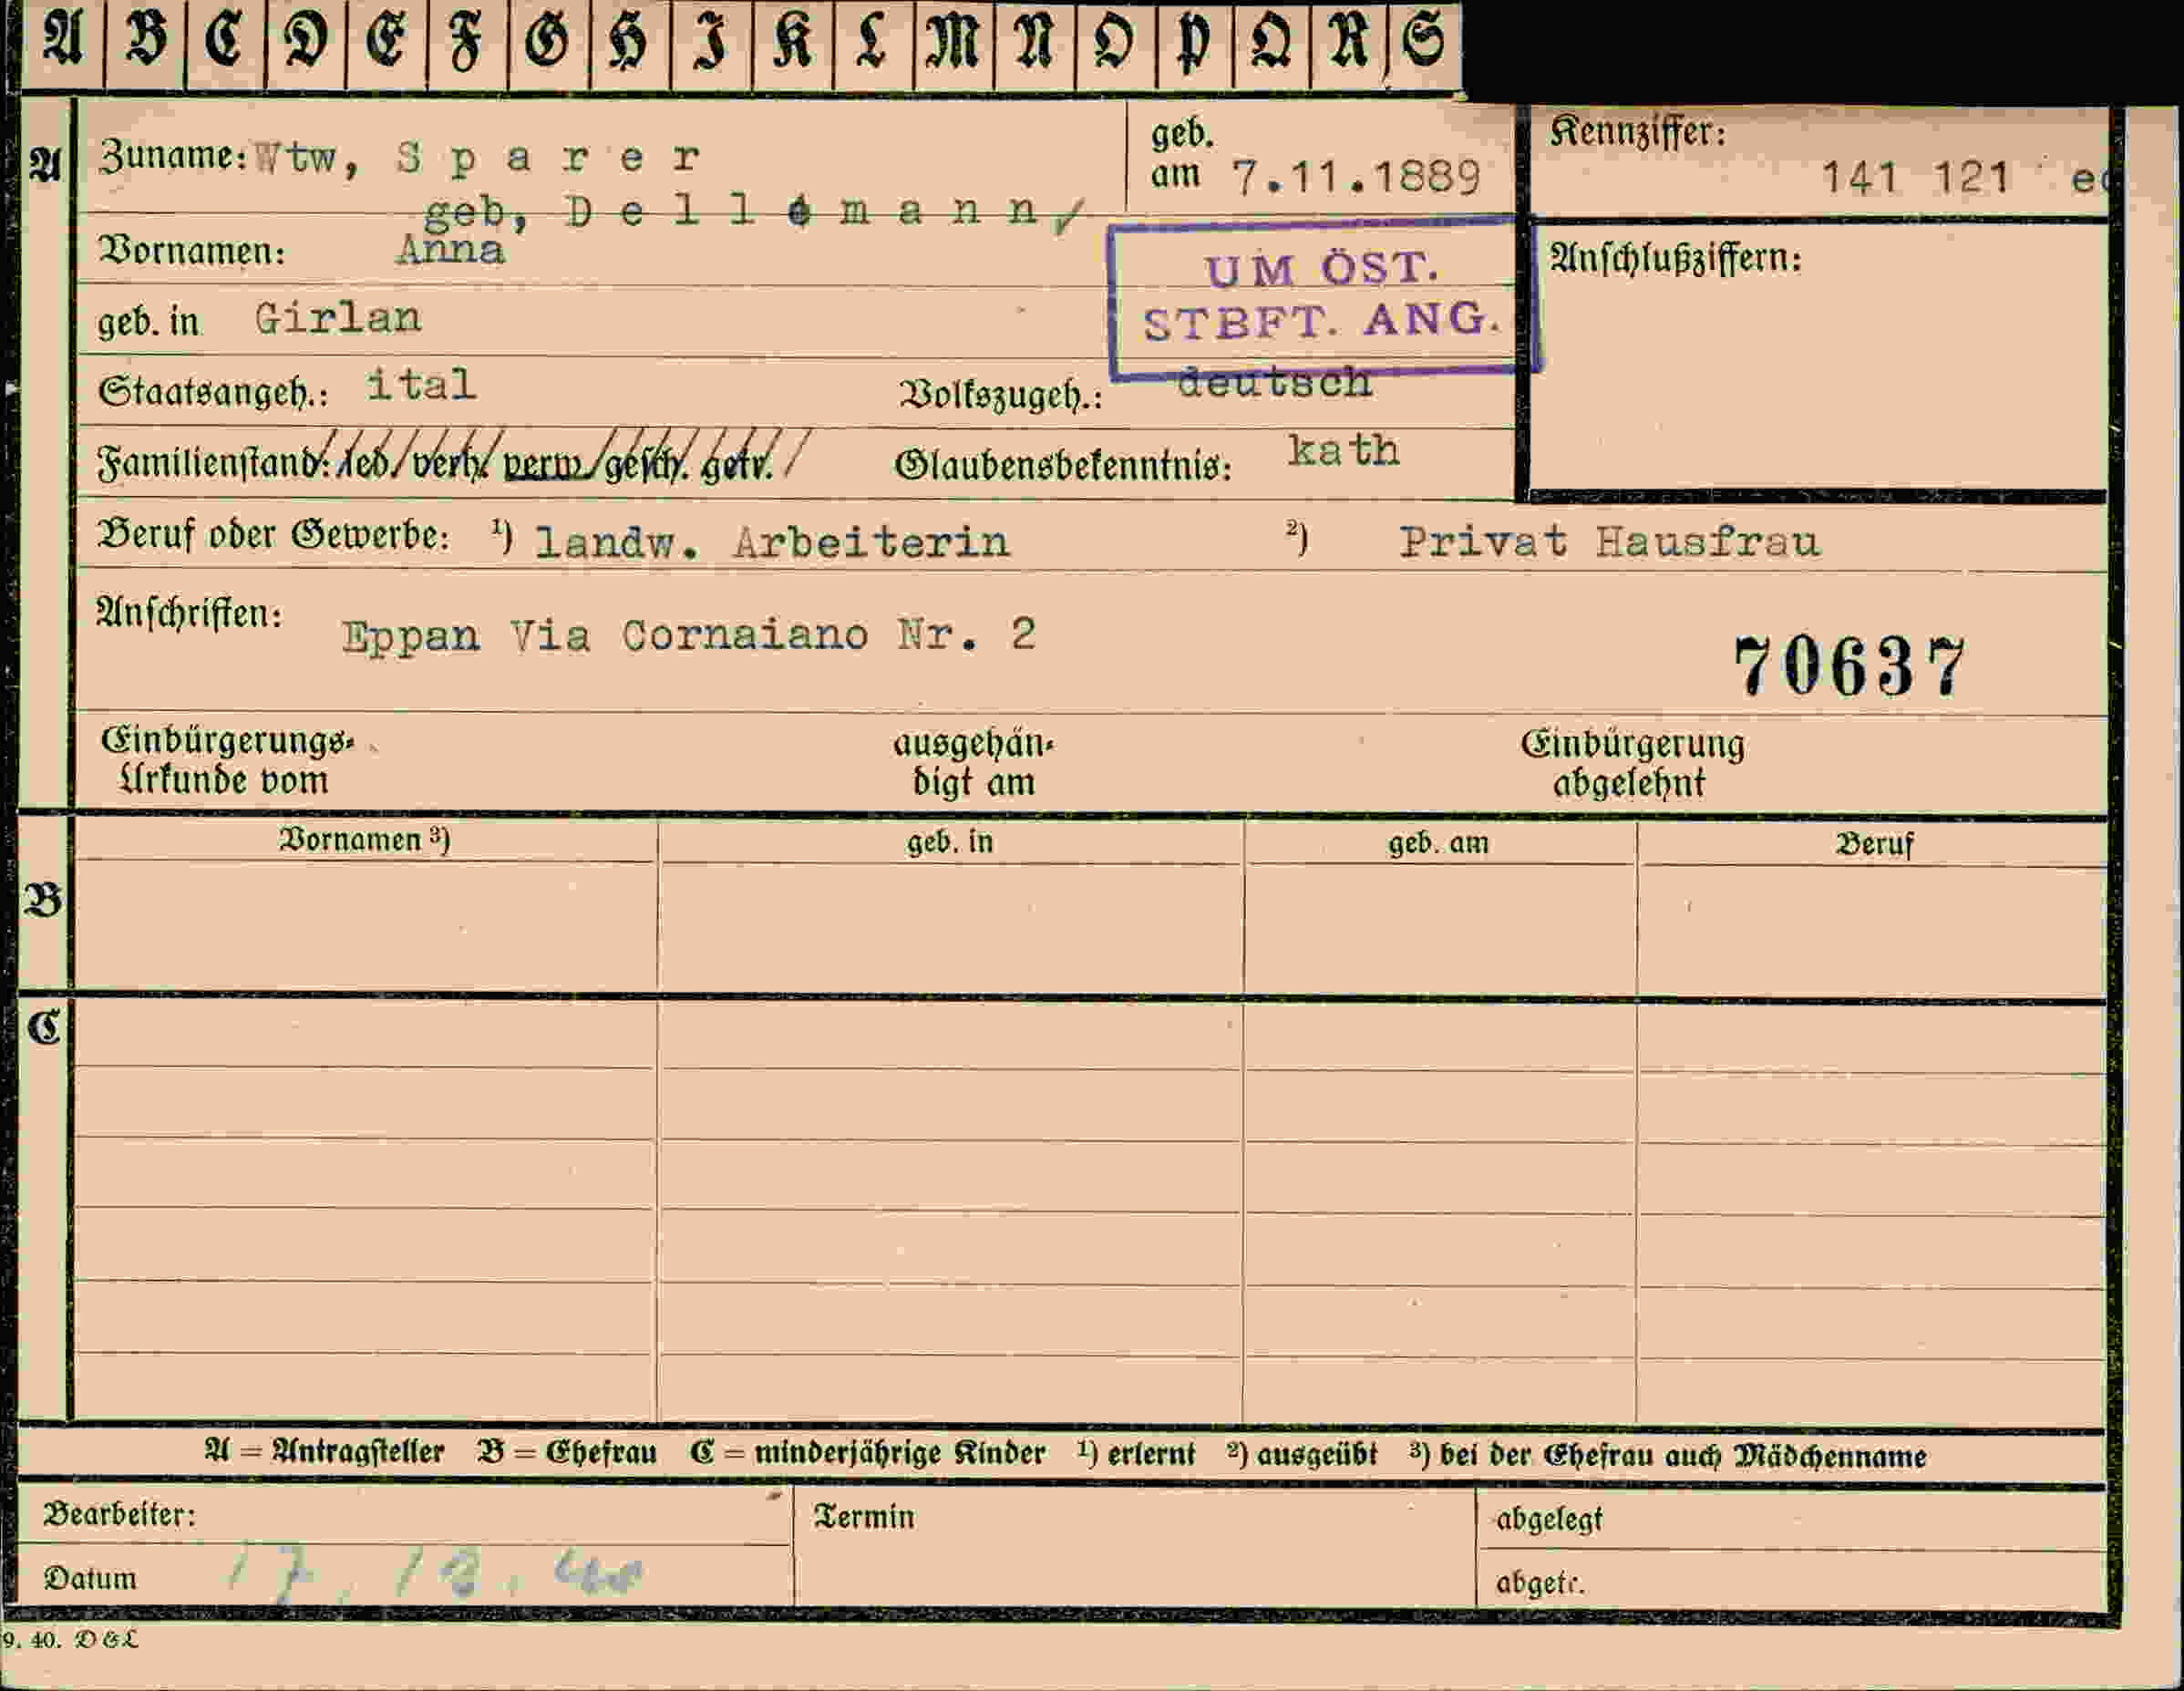 A B C D E F G H I K L M N O P Q R S
A
Zuname: Wtw, Sparer
geb, Dellemann,
geb. am 7.11.1889
Kennziffer:
141 121
Vornamen: Anna
UM ÖST.
STBFT. ANG.
Anschlußziffern:
geb. in Girlan
Staatsangeh.: ital
Volkszugeh.: deutsch
Familienstand: led/verh. verw/gesch. getr.
Glaubensbekenntnis: kath
Beruf oder Gewerbe: ¹) landw. Arbeiterin ²) Privat Hausfrau
Anschriften: Eppan Via Cornaiano Nr. 2
70637
Einbürgerungs-
Urkunde vom
ausgehän-
digt am
Einbürgerung
abgelehnt
B
Vornamen ³) geb. in geb. am Beruf
C
A = Antragsteller B = Ehefrau C = minderjährige Kinder ¹) erlernt ²) ausgeübt ³) bei der Ehefrau auch Mädchenname
Bearbeiter:
Termin
abgelegt
Datum 17.12.40
abgetr.
9. 40. D&L